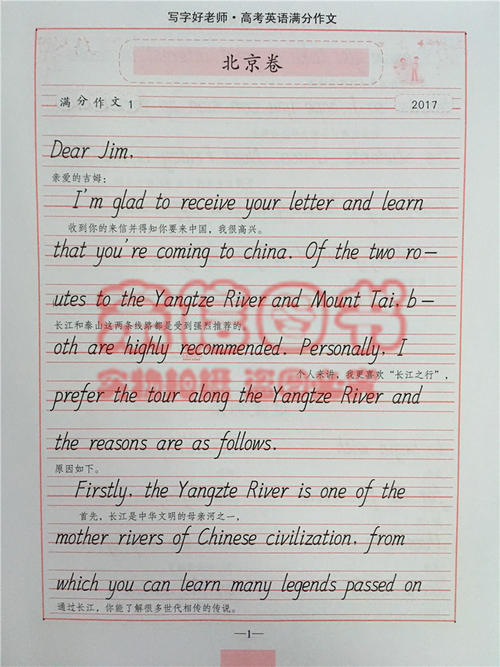 写字好老师·高考英语满分作文
北京卷
满分作文1
2017
Dear Jim,
亲爱的吉姆：
I'm glad to receive your letter and learn
收到你的来信并得知你要来中国，我很高兴。
that you're coming to china. Of the two ro-
utes to the Yangtze River and Mount Tai, b-
长江和泰山这两条线路都是受到强烈推荐的。
oth are highly recommended. Personally, I
个人来讲，我更喜欢“长江之行”，
prefer the tour along the Yangtze River and
the reasons are as follows.
原因如下。
Firstly, the Yangzte River is one of the
首先，长江是中华文明的母亲河之一，
mother rivers of Chinese civilization, from
which you can learn many legends passed on
通过长江，你能了解很多世代相传的传说。
—1—
图书
实物拍摄 盗图